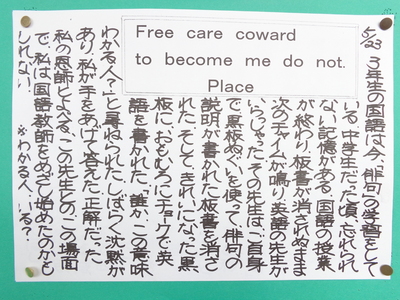 Free care coward
to become me do not.
Place
5/23 3年生の国語は今、俳句の学習をして
いる。中学生だった頃、忘れられ
ない記憶がある。国語の授業
が終わり、板書が消されぬまま
次のチャイムが鳴り、英語の先生が
いらっしゃった。その先生は、ご自身
で黒板ぬぐいを使って、俳句の
説明が書かれた板書を消さ
れた。そして、きれいになった黒
板に、おもむろにチョークで英
語を書かれた。「誰か、この意味
わかる人?」と尋ねられた。しばらく沈黙が
あり、私が手をあげて答えた。正解だった。
私の恩師とよべる、この先生との、この場面
で、私は国語教師をめざし始めたのかも
しれない。 ※わかる人、いる?